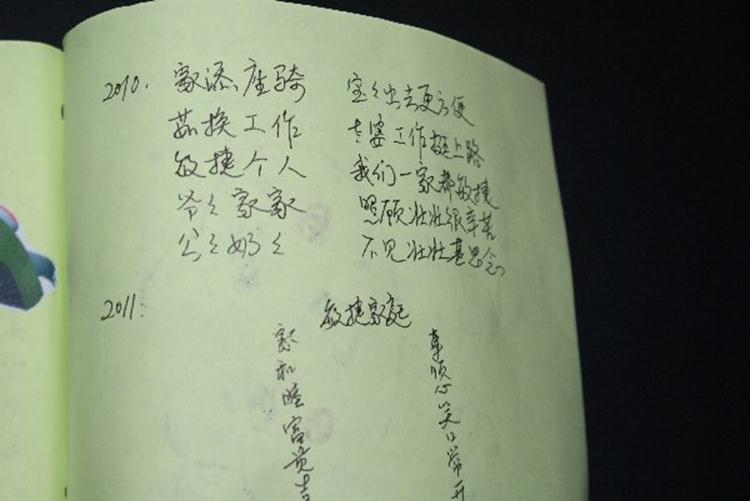 2010. 家添座骑 宝々出去更方便
茹换工作 老婆工作挺上路
敏捷个人 我们一家都敏捷
爷々家家 照顾壮壮很辛苦
公々奶々 不见壮壮甚思念
2011:
敏捷家记
家和睦富贵吉
事顺心笑口常开